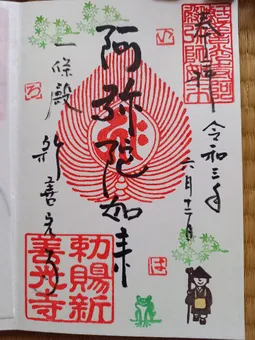 奉拝
令和三年
六月
い
阿弥陀如来
は
一條殿
新善光寺
ろ
勅賜新
善光寺